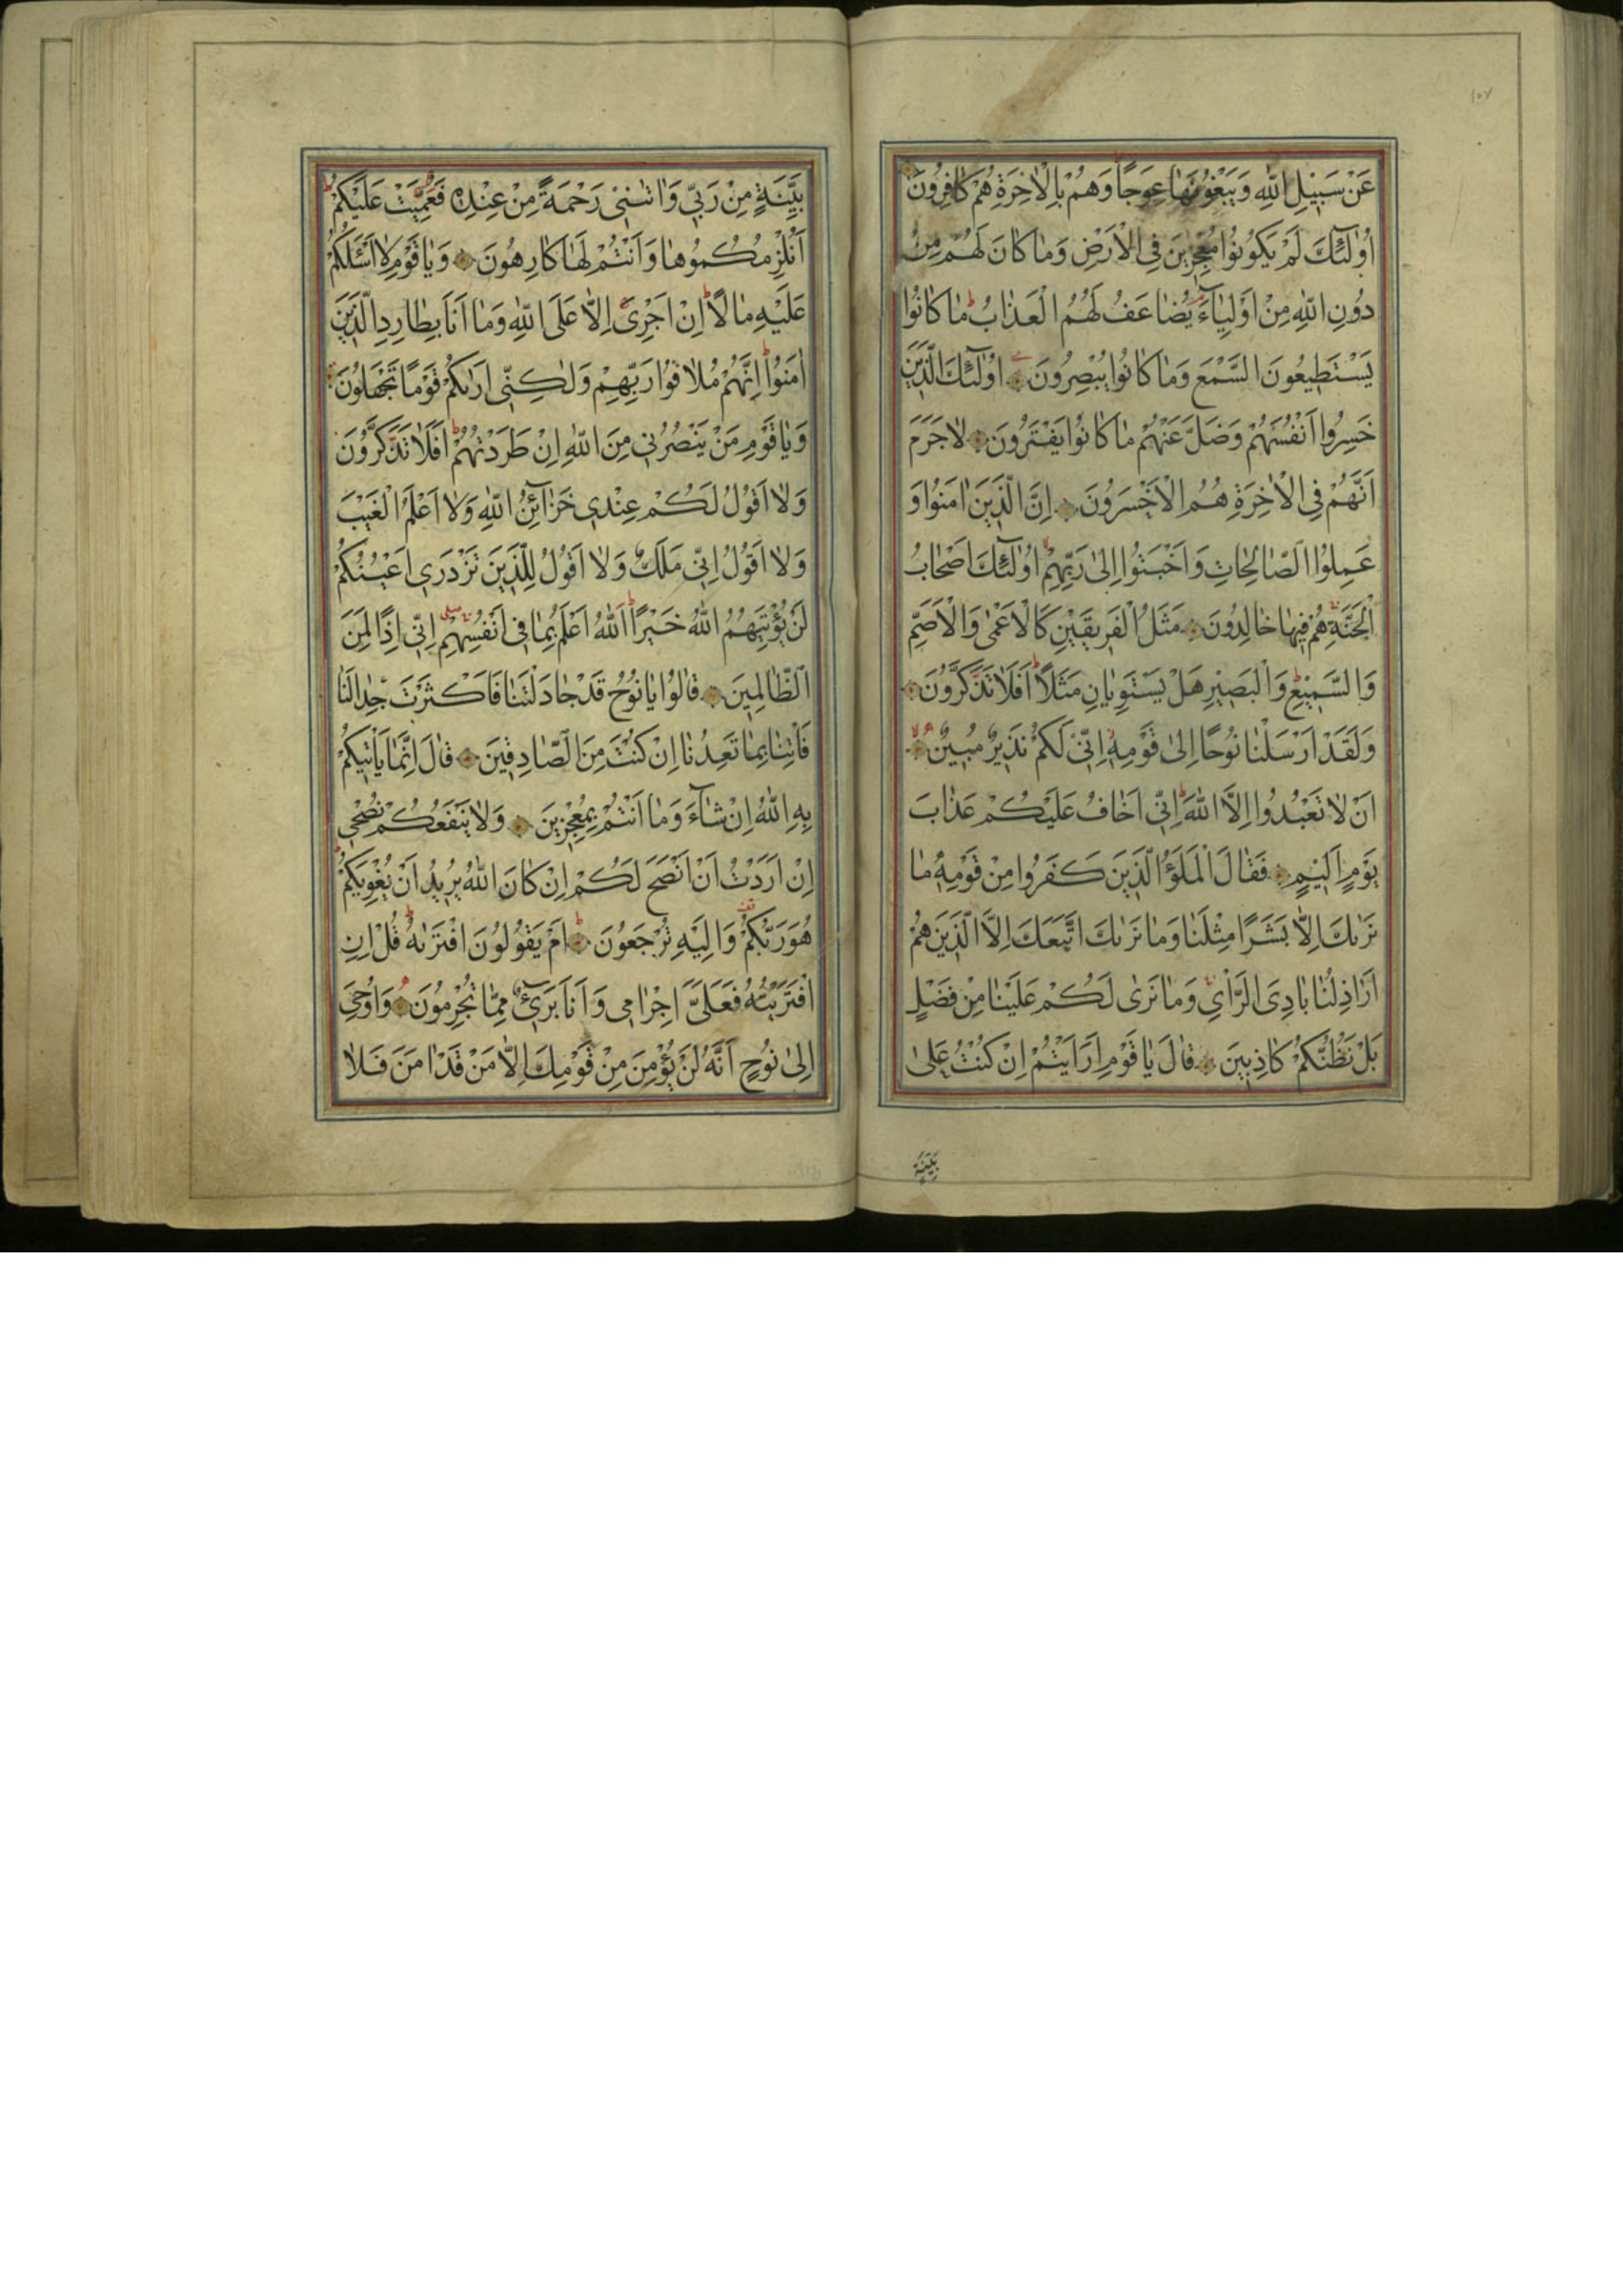 ١٥٧
عَنْ سَبِيلِ اللّٰهِ وَيَبْغُونَهَا عِوَجًا وَهُمْ بِالْاٰخِرَةِ هُمْ كَافِرُونَ
اُولٰٓئِكَ لَمْ يَكُونُوا مُعْجِزِينَ فِى الْاَرْضِ وَمَا كَانَ لَهُمْ مِنْ
دُونِ اللّٰهِ مِنْ اَوْلِيَآءَ يُضَاعَفُ لَهُمُ الْعَذَابُ ط مَا كَانُوا
يَسْتَطِيعُونَ السَّمْعَ وَمَا كَانُوا يُبْصِرُونَ اُولٰٓئِكَ الَّذِينَ
خَسِرُوا اَنْفُسَهُمْ وَضَلَّ عَنْهُمْ مَا كَانُوا يَفْتَرُونَ لَا جَرَمَ
اَنَّهُمْ فِى الْاٰخِرَةِ هُمُ الْاَخْسَرُونَ اِنَّ الَّذِينَ اٰمَنُوا وَ
عَمِلُوا الصَّالِحَاتِ وَاَخْبَتُوا اِلٰى رَبِّهِمْ لا اُولٰٓئِكَ اَصْحَابُ
الْجَنَّةِ هُمْ فِيهَا خَالِدُونَ مَثَلُ الْفَرِيقَيْنِ كَالْاَعْمٰى وَالْاَصَمِّ
وَالسَّمِيعِ ط وَالْبَصِيرِ هَلْ يَسْتَوِيَانِ مَثَلًا ط اَفَلَا تَذَكَّرُونَ
وَلَقَدْ اَرْسَلْنَا نُوحًا اِلٰى قَوْمِهٖ اِنِّى لَكُمْ نَذِيرٌ مُبِينٌ لا
اَنْ لَا تَعْبُدُوا اِلَّا اللّٰهَ ط اِنِّى اَخَافُ عَلَيْكُمْ عَذَابَ
يَوْمٍ اَلِيمٍ فَقَالَ الْمَلَؤُ الَّذِينَ كَفَرُوا مِنْ قَوْمِهٖ مَا
نَرٰيكَ اِلَّا بَشَرًا مِثْلَنَا وَمَا نَرٰيكَ اتَّبَعَكَ اِلَّا الَّذِينَ هُمْ
اَرَاذِلُنَا بَادِىَ الرَّاْىِ وَمَا نَرٰى لَكُمْ عَلَيْنَا مِنْ فَضْلٍ
بَلْ نَظُنُّكُمْ كَاذِبِينَ قَالَ يَا قَوْمِ اَرَاَيْتُمْ اِنْ كُنْتُ عَلٰى
بَيِّنَةٍ
بَيِّنَةٍ مِنْ رَبِّى وَاٰتٰينِى رَحْمَةً مِنْ عِنْدِهٖ فَعُمِّيَتْ عَلَيْكُمْ ط
اَنُلْزِمُكُمُوهَا وَاَنْتُمْ لَهَا كَارِهُونَ وَيَا قَوْمِ لَا اَسْئَلُكُمْ
عَلَيْهِ مَالًا ط اِنْ اَجْرِىَ اِلَّا عَلَى اللّٰهِ وَمَا اَنَا بِطَارِدِ الَّذِينَ
اٰمَنُوا ط اِنَّهُمْ مُلَاقُوا رَبِّهِمْ وَلٰكِنِّى اَرٰيكُمْ قَوْمًا تَجْهَلُونَ
وَيَا قَوْمِ مَنْ يَنْصُرُنِى مِنَ اللّٰهِ اِنْ طَرَدْتُهُمْ ط اَفَلَا تَذَكَّرُونَ
وَلَا اَقُولُ لَكُمْ عِنْدِى خَزَآئِنُ اللّٰهِ وَلَا اَعْلَمُ الْغَيْبَ
وَلَا اَقُولُ اِنِّى مَلَكٌ وَلَا اَقُولُ لِلَّذِينَ تَزْدَرِى اَعْيُنُكُمْ
لَنْ يُؤْتِيَهُمُ اللّٰهُ خَيْرًا ط اَللّٰهُ اَعْلَمُ بِمَا فِى اَنْفُسِهِمْ صلى اِنِّى اِذًا لَمِنَ
الظَّالِمِينَ قَالُوا يَا نُوحُ قَدْ جَادَلْتَنَا فَاَكْثَرْتَ جِدَالَنَا
فَاْتِنَا بِمَا تَعِدُنَا اِنْ كُنْتَ مِنَ الصَّادِقِينَ قَالَ اِنَّمَا يَاْتِيكُمْ
بِهِ اللّٰهُ اِنْ شَآءَ وَمَا اَنْتُمْ بِمُعْجِزِينَ وَلَا يَنْفَعُكُمْ نُصْحِى
اِنْ اَرَدْتُ اَنْ اَنْصَحَ لَكُمْ اِنْ كَانَ اللّٰهُ يُرِيدُ اَنْ يُغْوِيَكُمْ ط
هُوَ رَبُّكُمْ قف وَاِلَيْهِ تُرْجَعُونَ ط اَمْ يَقُولُونَ افْتَرٰيهُ ط قُلْ اِنِ
افْتَرَيْتُهُ فَعَلَىَّ اِجْرَامِى وَاَنَا بَرِىٓءٌ مِمَّا تُجْرِمُونَ وَاُوحِىَ
اِلٰى نُوحٍ اَنَّهُ لَنْ يُؤْمِنَ مِنْ قَوْمِكَ اِلَّا مَنْ قَدْ اٰمَنَ فَلَا